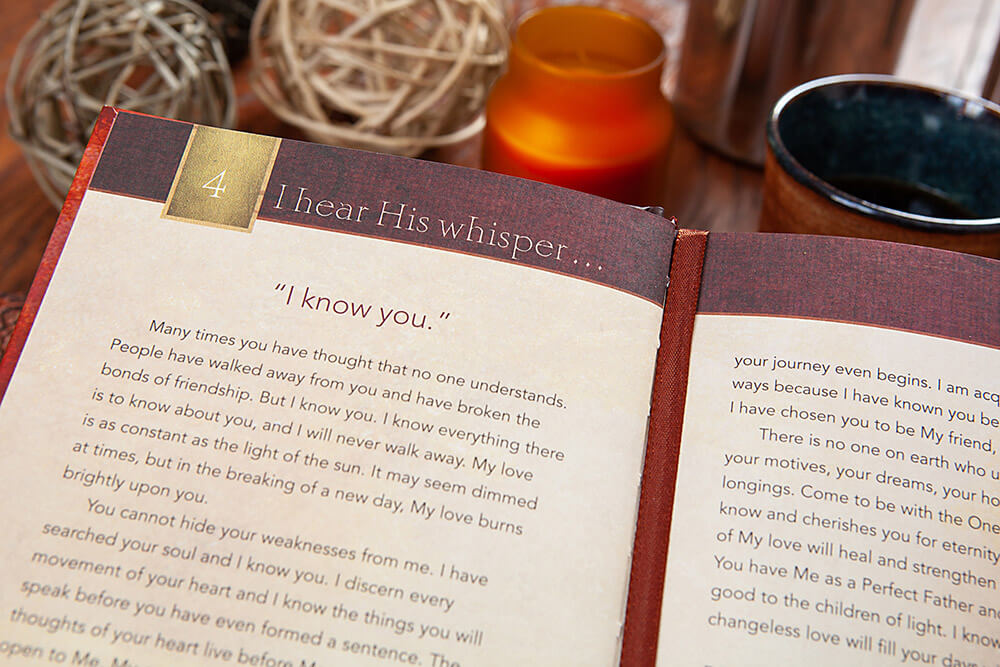 4
I hear His whisper...
“I know you.”
Many times you have thought that no one understands.
People have walked away from you and have broken the
bonds of friendship. But I know you. I know everything there
is to know about you, and I will never walk away. My love
is as constant as the light of the sun. It may seem dimmed
at times, but in the breaking of a new day, My love burns
brightly upon you.
You cannot hide your weaknesses from me. I have
searched your soul and I know you. I discern every
movement of your heart and I know the things you will
speak before you have even formed a sentence. The
thoughts of your heart live before
open to Me.
your journey even begins. I am
ways because I have known you
I have chosen you to be My friend,
There is no one on earth who
your motives, your dreams, your
longings. Come to be with the One
know and cherishes you for eternity
of My love will heal and strengthen
You have Me as a Perfect Father
good to the children of light. I know
changeless love will fill your